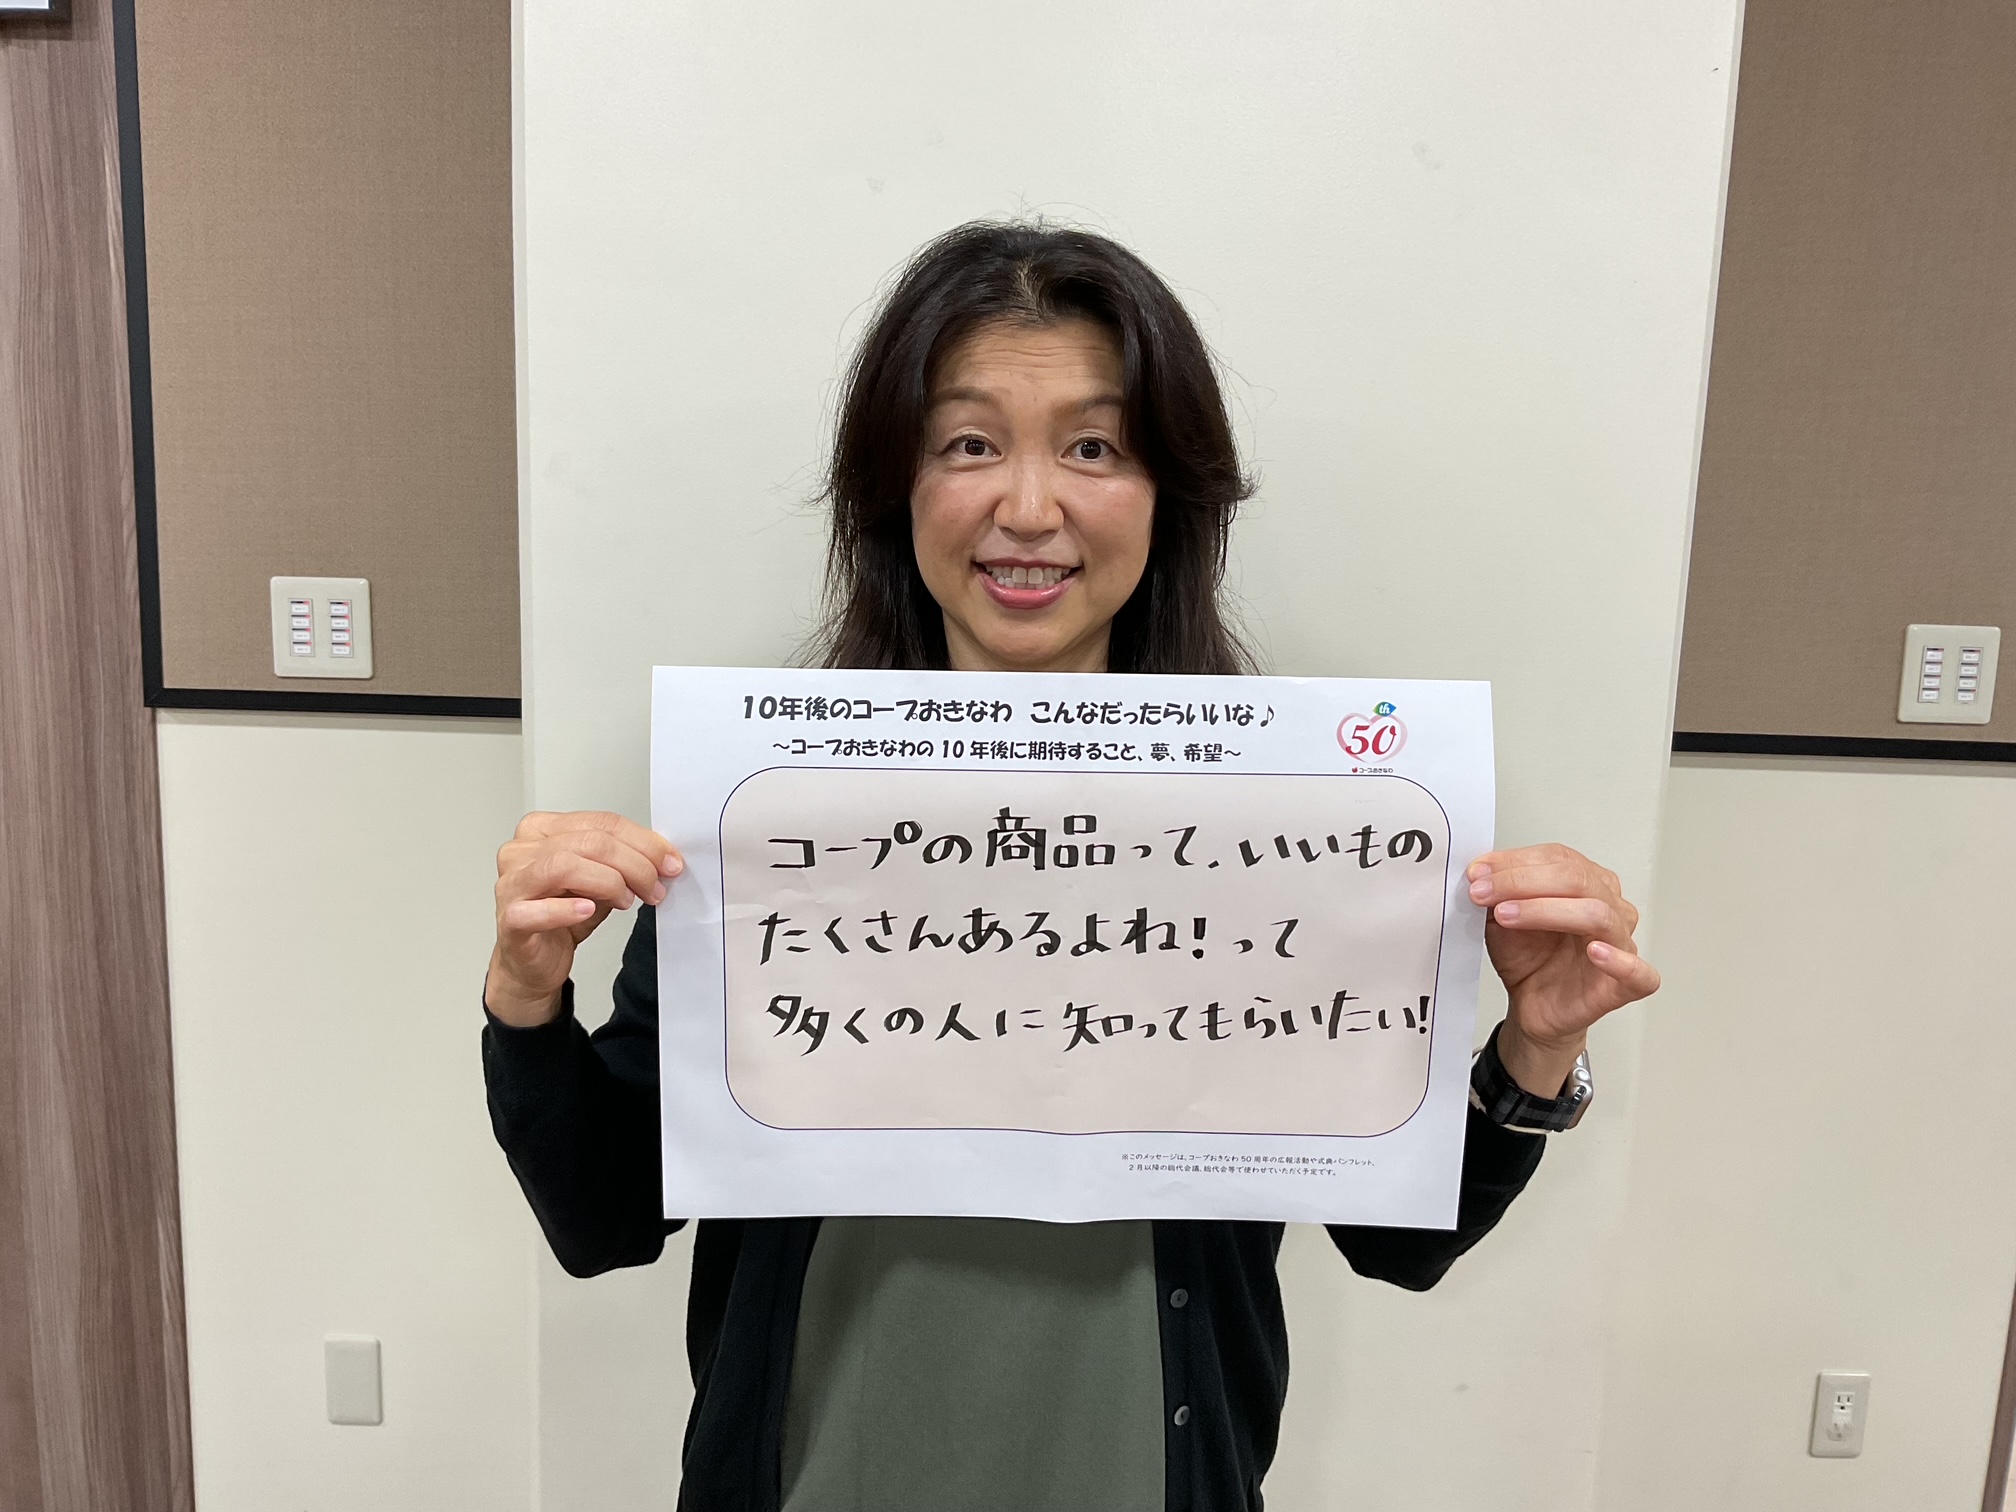 10年後のコープおきなわ こんなだったらいいな♪
～コープおきなわの10年後に期待すること、夢、希望～
50th
コープおきなわ
コープの商品って、いいもの
たくさんあるよね!って
多くの人に知ってもらいたい!
※このメッセージは、コープおきなわ50周年の広報活動や式典パンフレット、
2月以降の総代会議、総代会等で使わせていただく予定です。